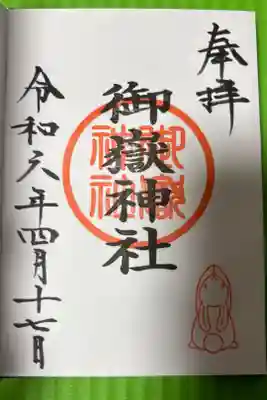 奉拝
御嶽神社
御嶽神社
令和六年四月十七日